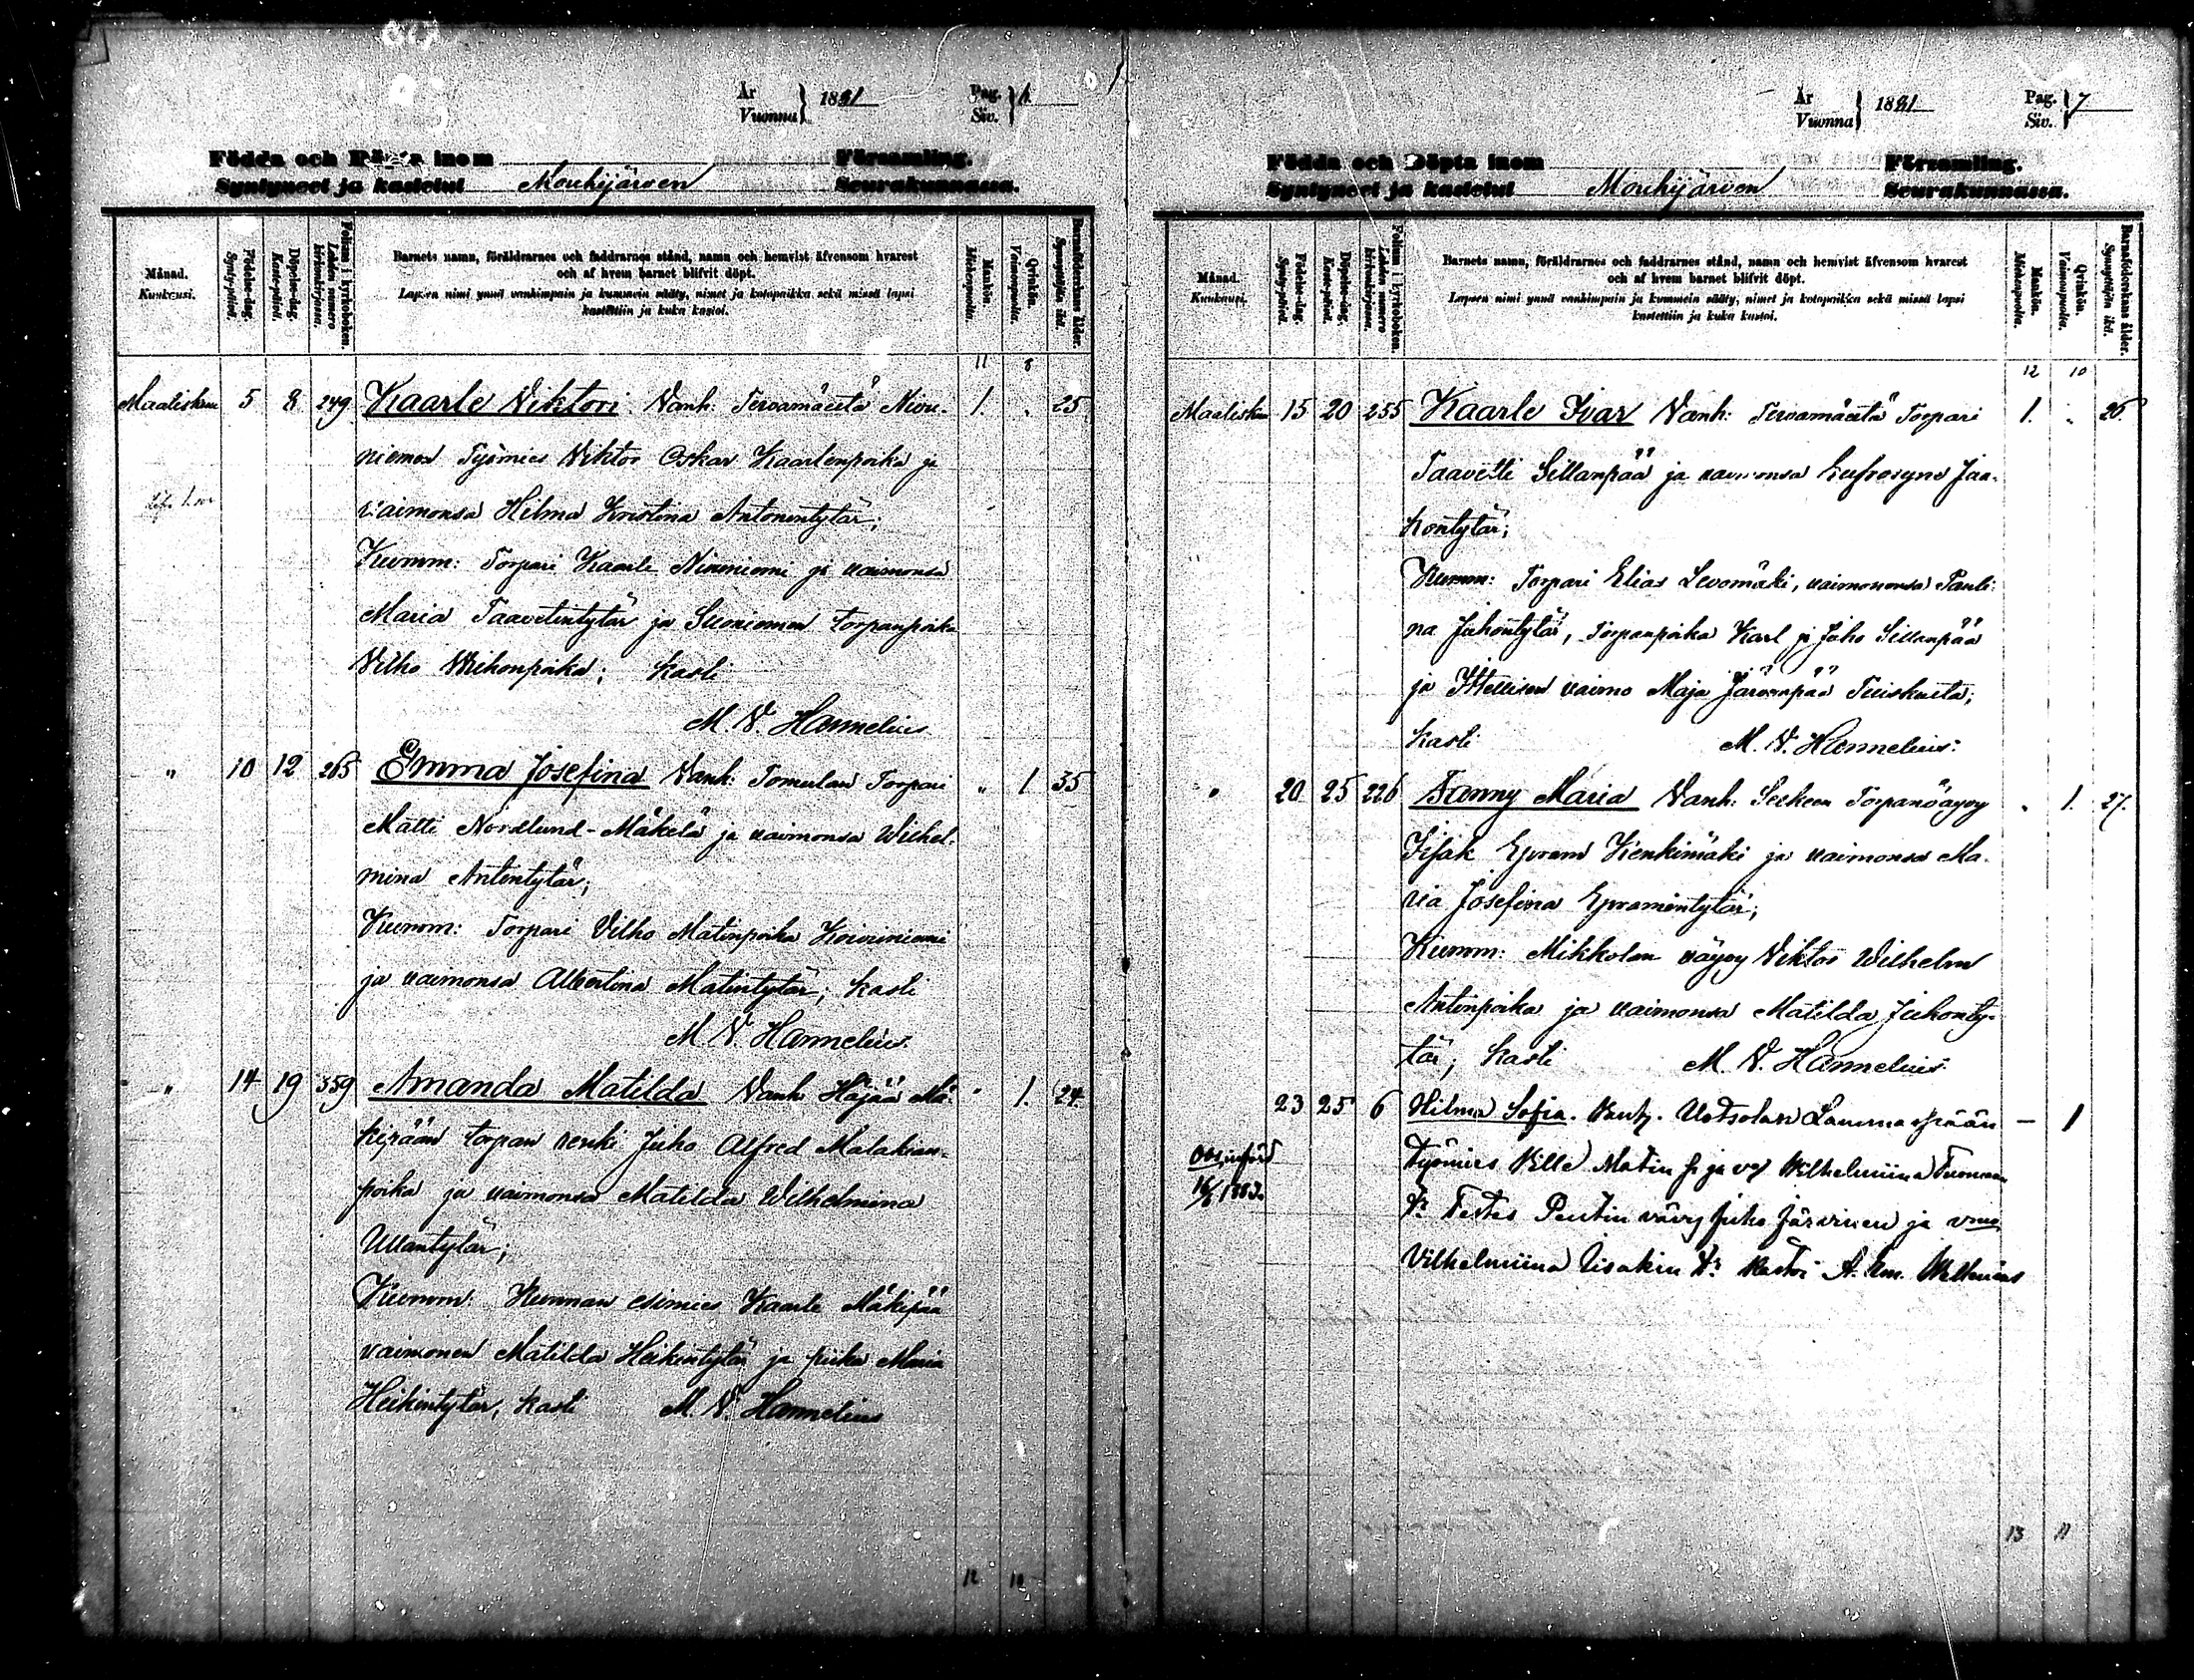 År
Vuonna } 1881 Pag.
Siv. } 6.
Födda och Döpta inom Församling.
Syntyneet ja kastetut Mouhijärven Seurakunnassa.
Månad.
Kuukausi.
Födelse-dag.
Synty-päivä.
Döpelse-dag.
Kaste-päivä.
Folium i kyrkoboken.
Lehden numero kirkonkirjassa.
Barnets namn, föräldrarnes och faddrarnes stånd, namn och hemvist äfvensom hvarest
och af hvem barnet blifvit döpt.
Lapsen nimi ynnä vanhimpain ja kummein sääty, nimet ja kotapaikka sekä missä lapsi
kastettiin ja kuka kastoi.
Mankön.
Miehenpuolia.
Qvinkön.
Vaimonpuolia.
Barnaföderskans ålder.
Synnyttäjän ikä.
11 8
Maaliskuu 5 8 249 Kaarle Viktori Vanh: Tervamäestä Niini- 1. „ 25
niemen Työmies Viktor Oskar Kaarlenpoika ja
vaimonsa Hilma Kristina Antonintytär;
Kumm: Torpari Kaarle Niiniemi ja vaimonsa
Maria Taavetintytär ja Suoniemen torpanpoika
Vilho Vilhonpoika; kasti
M. V. Hannelius
„ 10 12 265 Emma Josefina Vanh: Tomulan Torpari „ 1 35
Matti Nordlund-Mäkelä ja vaimonsa Wilhel-
mina Antintytär;
Kumm: Torpari Vilho Matinpoika Koiviniemi
ja vaimonsa Albertina Matintytär; kasti
M. V. Hannelius.
„ 14 19 359 Amanda Matilda Vanh. Häijää Mä- „ 1. 24
kipään torpan renki Juho Alfred Malakian-
poika ja vaimonsa Matilda Wilhelmina
Ullantytär;
Kumm: Kunnan esimies Kaarle Mäkipää
vaimonen Matilda Heikintytär ja piika Maria
Heikintytär, kasti M. V. Hannelius
12 10
År
Vuonna } 1881 Pag.
Siv. } 7
Födda och Döpta inom Församling.
Syntyneet ja kastetut Mouhijärven Seurakunnassa.
Månad.
Kuukausi.
Födelse-dag.
Synty-päivä.
Döpelse-dag.
Kaste-päivä.
Folium i kyrkoboken.
Lehden numero kirkonkirjassa.
Barnets namn, föräldrarnes och faddrarnes stånd, namn och hemvist äfvensom hvarest
och af hvem barnet blifvit döpt.
Lapsen nimi ynnä vanhimpain ja kummein sääty, nimet ja kotapaikka sekä missä lapsi
kastettiin ja kuka kastoi.
Mankön.
Miehenpuolia.
Qvinkön.
Vaimonpuolia.
Barnaföderskans ålder.
Synnyttäjän ikä.
12 10
Maalisku 15 20 255 Kaarle Ivar Vanh: Tervamäestä Torpari 1. „ 26
Taavetti Sillanpää ja vaimonsa Eufrosyne Jaa-
kontytär;
Kumm: Torpari Elias Levomäki, vaimononsa Pauli-
na Juhontytär, Torpanpoika Karl ja Juho Sillanpää
ja Itsellisen vaimo Maja Järvenpää Tuiskusta;
kasti M. V. Hannelius.
„ 20 25 226 Fanny Maria Vanh: Selkeen Torpanvävy „ 1. 27.
Isak Epram Kenkimäki ja vaimonsa Ma-
ria Josefina Epramintytär;
Kumm: Mikkolan vävy Viktor Wilhelm
Antinpoika ja vaimonsa Matilda Juhonty-
tär; kasti M. V. Hannelius.
23 25 6 Hilma Sofia. Vanh. Uotsolan Lammaspään — 1
Työmies Ville Matin p. ja vo Vilhelmiina Tuomaan
Obs. införd
16/5 1883.
tr Testes Pentin vävy Juho Järvinen ja vmo
Vilhelmiina Iisakin tr. Kastoi A. Em.
13 11